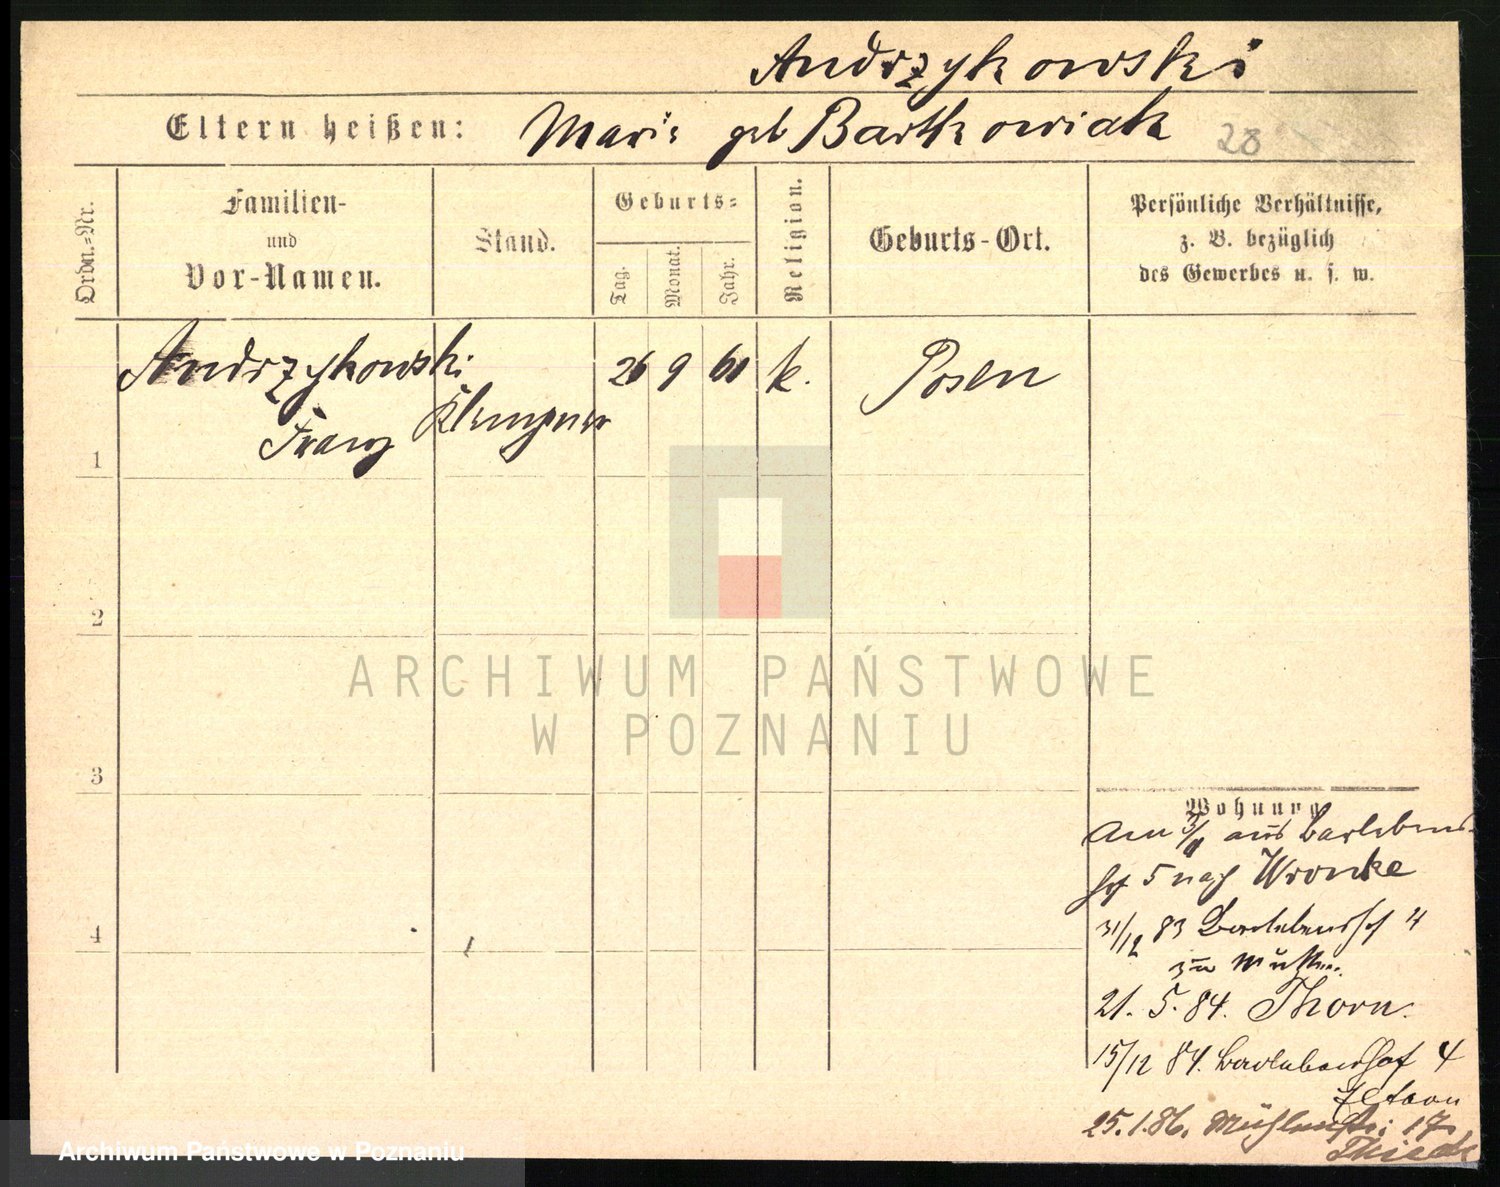 Andrzykowski
Eltern heißen: Marie geb Bartkowiak 28
Ordn.-Nr.
Familien-
und
Vor-Namen.
Stand.
Geburts-
Tag.
Monat.
Jahr.
Religion.
Geburts-Ort.
Persönliche Verhältnisse,
z. B. bezüglich
des Gewerbes u. s. w.
Andrzykowski
Franz
Klempner
26 9 60 k. Posen
1
2
3
4
ARCHIWUM PAŃSTWOWE
W POZNANIU
Wohnung
am aus Barlebens-
hof 5 nach Wronke
31/12 83 Barlebenshof 4
zur
21. 5. 84. Thorn.
15/12 84. Barlebenshof 4
Eltern
25.1.86. Mühlenstr. 17
Archiwum Państwowe w Poznaniu